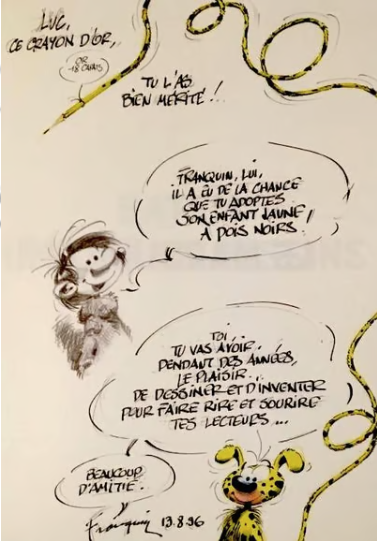 LUC,
CE CRAYON D'OR,
OR
18 CARATS
TU L'AS
BIEN MÉRITÉ !
FRANQUIN, LUI,
IL A EU DE LA CHANCE
QUE TU ADOPTES
SON ENFANT JAUNE,
A POIS NOIRS.
TOI..
TU VAS AVOIR.
PENDANT DES ANNÉES,
LE PLAISIR..
DE DESSINER ET D'INVENTER
POUR FAIRE RIRE ET SOURIRE
TES LECTEURS...
BEAUCOUP
D'AMITIÉ.
Franquin 13.8.96